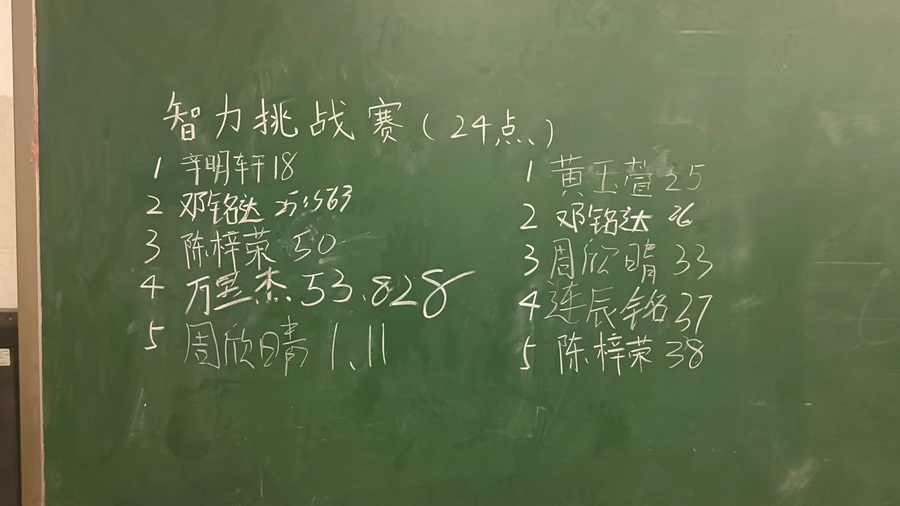 智力挑战赛（24点）
1 辛明轩18
2 邓铭达
3 陈梓荣 50
4 万昱杰 53.828
5 周欣晴 1.11
1 黄玉萱 25
2 邓铭达 26
3 周欣晴 33
4 连辰铭 37
5 陈梓荣 38